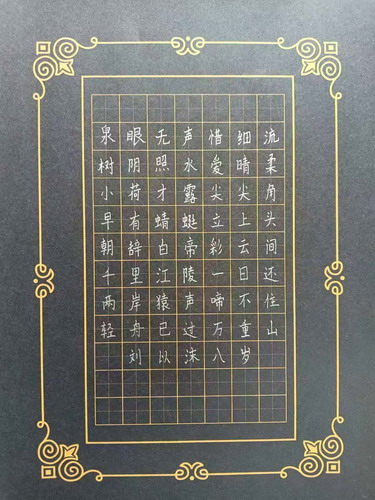 泉眼无声惜细流
树阴照水爱晴柔
小荷才露尖尖角
早有蜻蜓立上头
朝辞白帝彩云间
千里江陵一日还
两岸猿声啼不住
轻舟已过万重山
刘以沫八岁